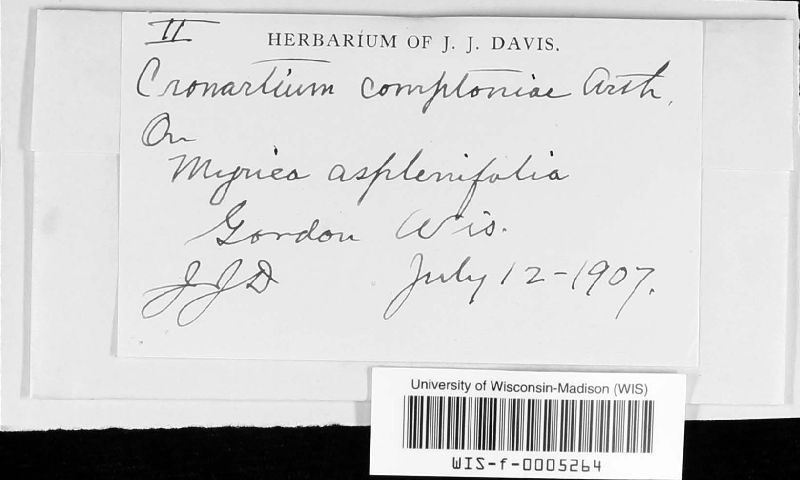 II
HERBARIUM OF J. J. DAVIS.
Cronartium comptoniae Arth.
On
Myrica asplenifolia
Gordon Wis.
JJD July 12-1907.
University of Wisconsin-Madison (WIS)
WIS-f-0005264